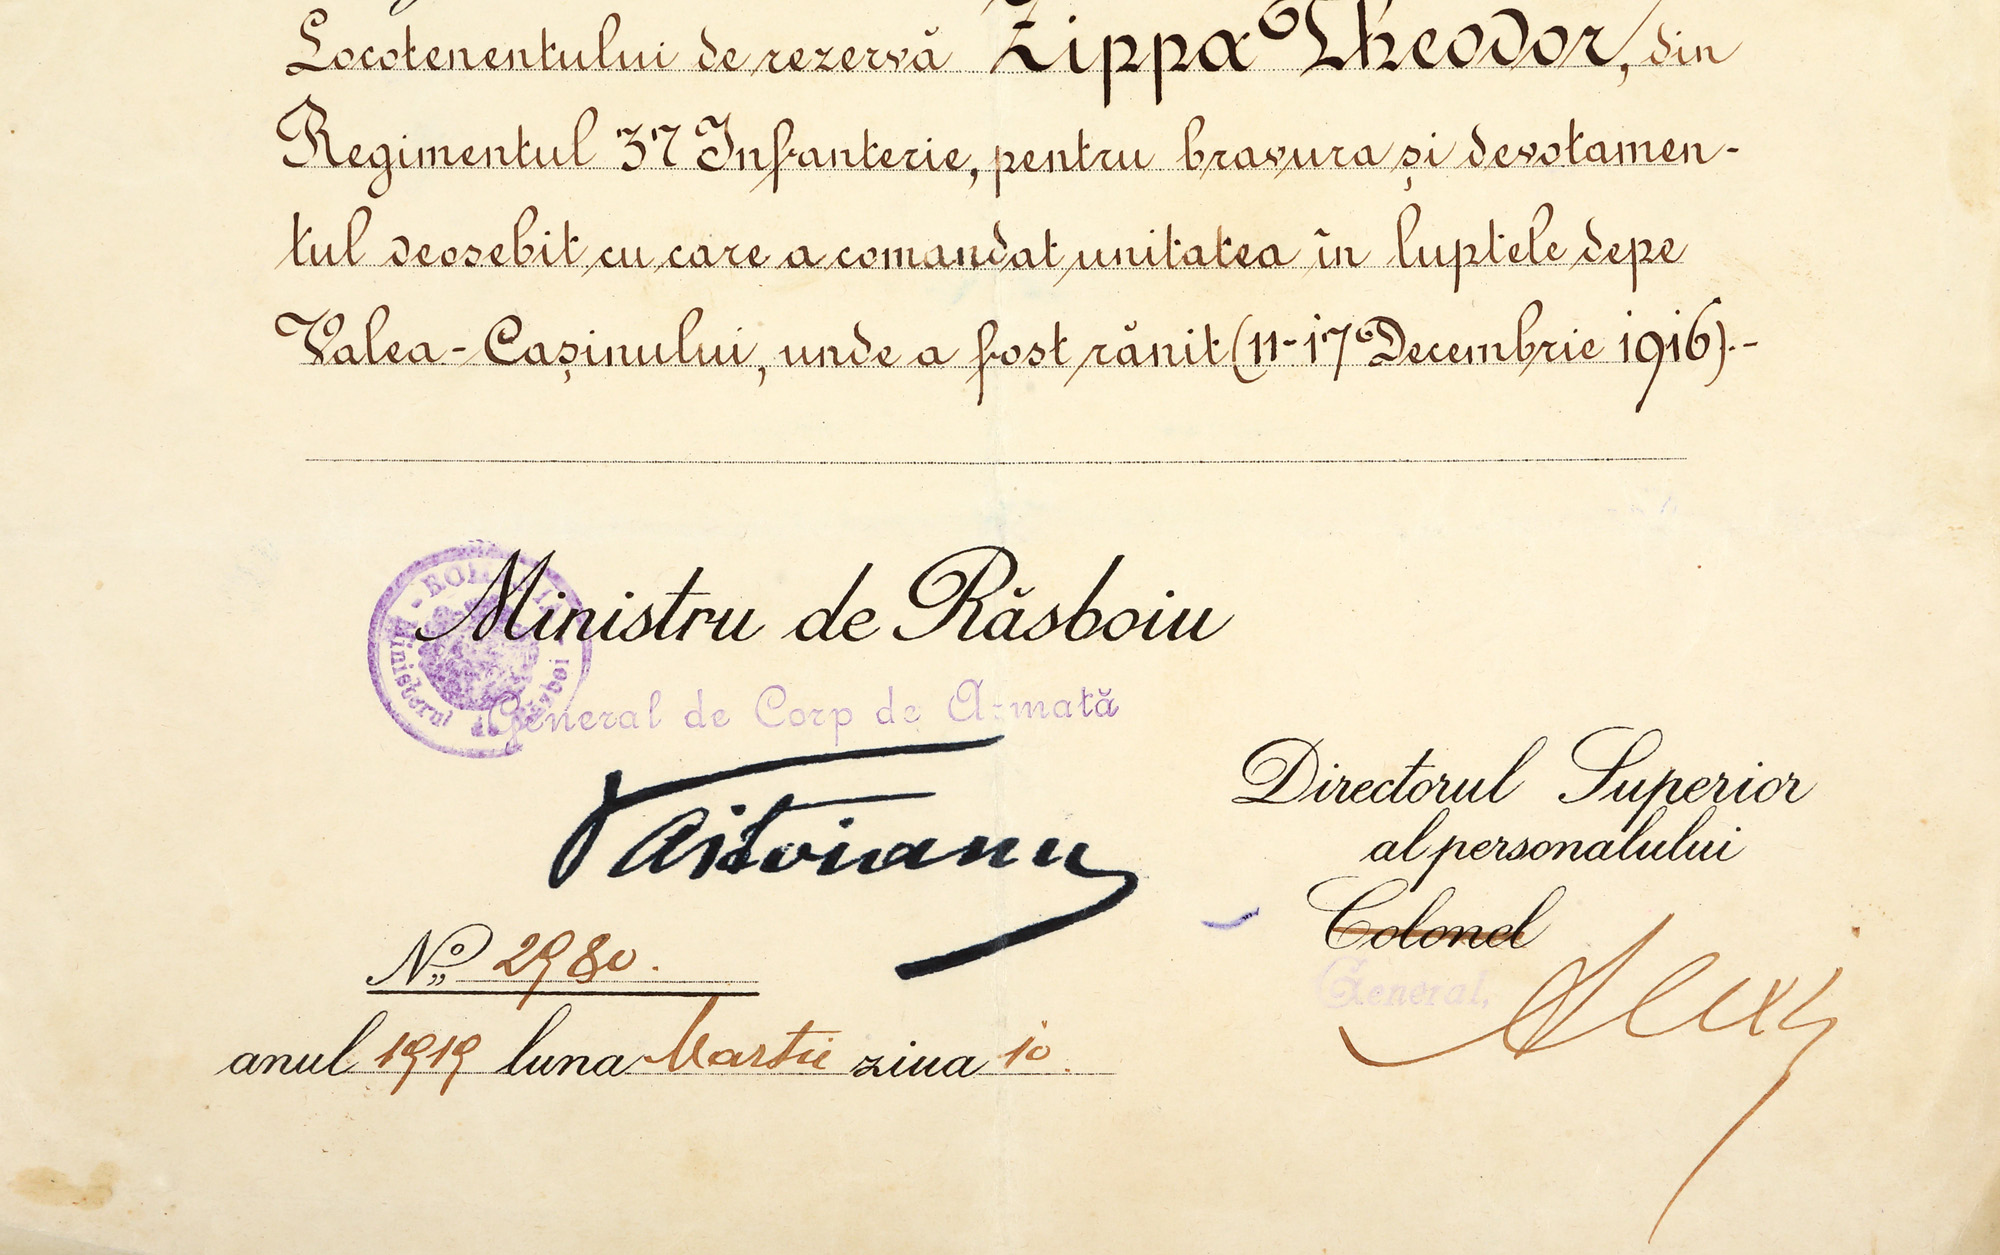 Locotenentului de rezervă Zippa Theodor, din
Regimentul 37 Infanterie, pentru bravura și devotamen-
tul deosebit cu care a comandat unitatea în luptele depe
Valea-Cașinului, unde a fost rănit (11-17 Decembrie 1916).-
Ministru de Răsboiu
Ministerul de Război
General de Corp de Armată
Vaitoianu
Directorul Superior
al personalului
Colonel
General,
No 2980.
anul 1919 luna Martie ziua 10.